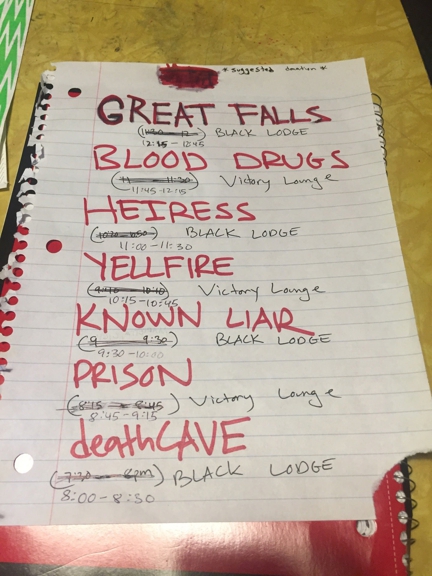 *suggested donation*
GREAT FALLS
(11:30 - 12) BLACK LODGE
12:15 - 12:45
BLOOD DRUGS
(11 - 11:30) Victory Lounge
11:45 - 12:15
HEIRESS
BLACK LODGE
11:00 - 11:30
YELLFIRE
(9:40 - 10:10) Victory Lounge
10:15 - 10:45
KNOWN LIAR
(9 9:30) BLACK LODGE
9:30 - 10:00
PRISON
(8:15 - 8:45) Victory Lounge
8:45 - 9:15
deathCAVE
(7:30 - 8pm) BLACK LODGE
8:00 - 8:30